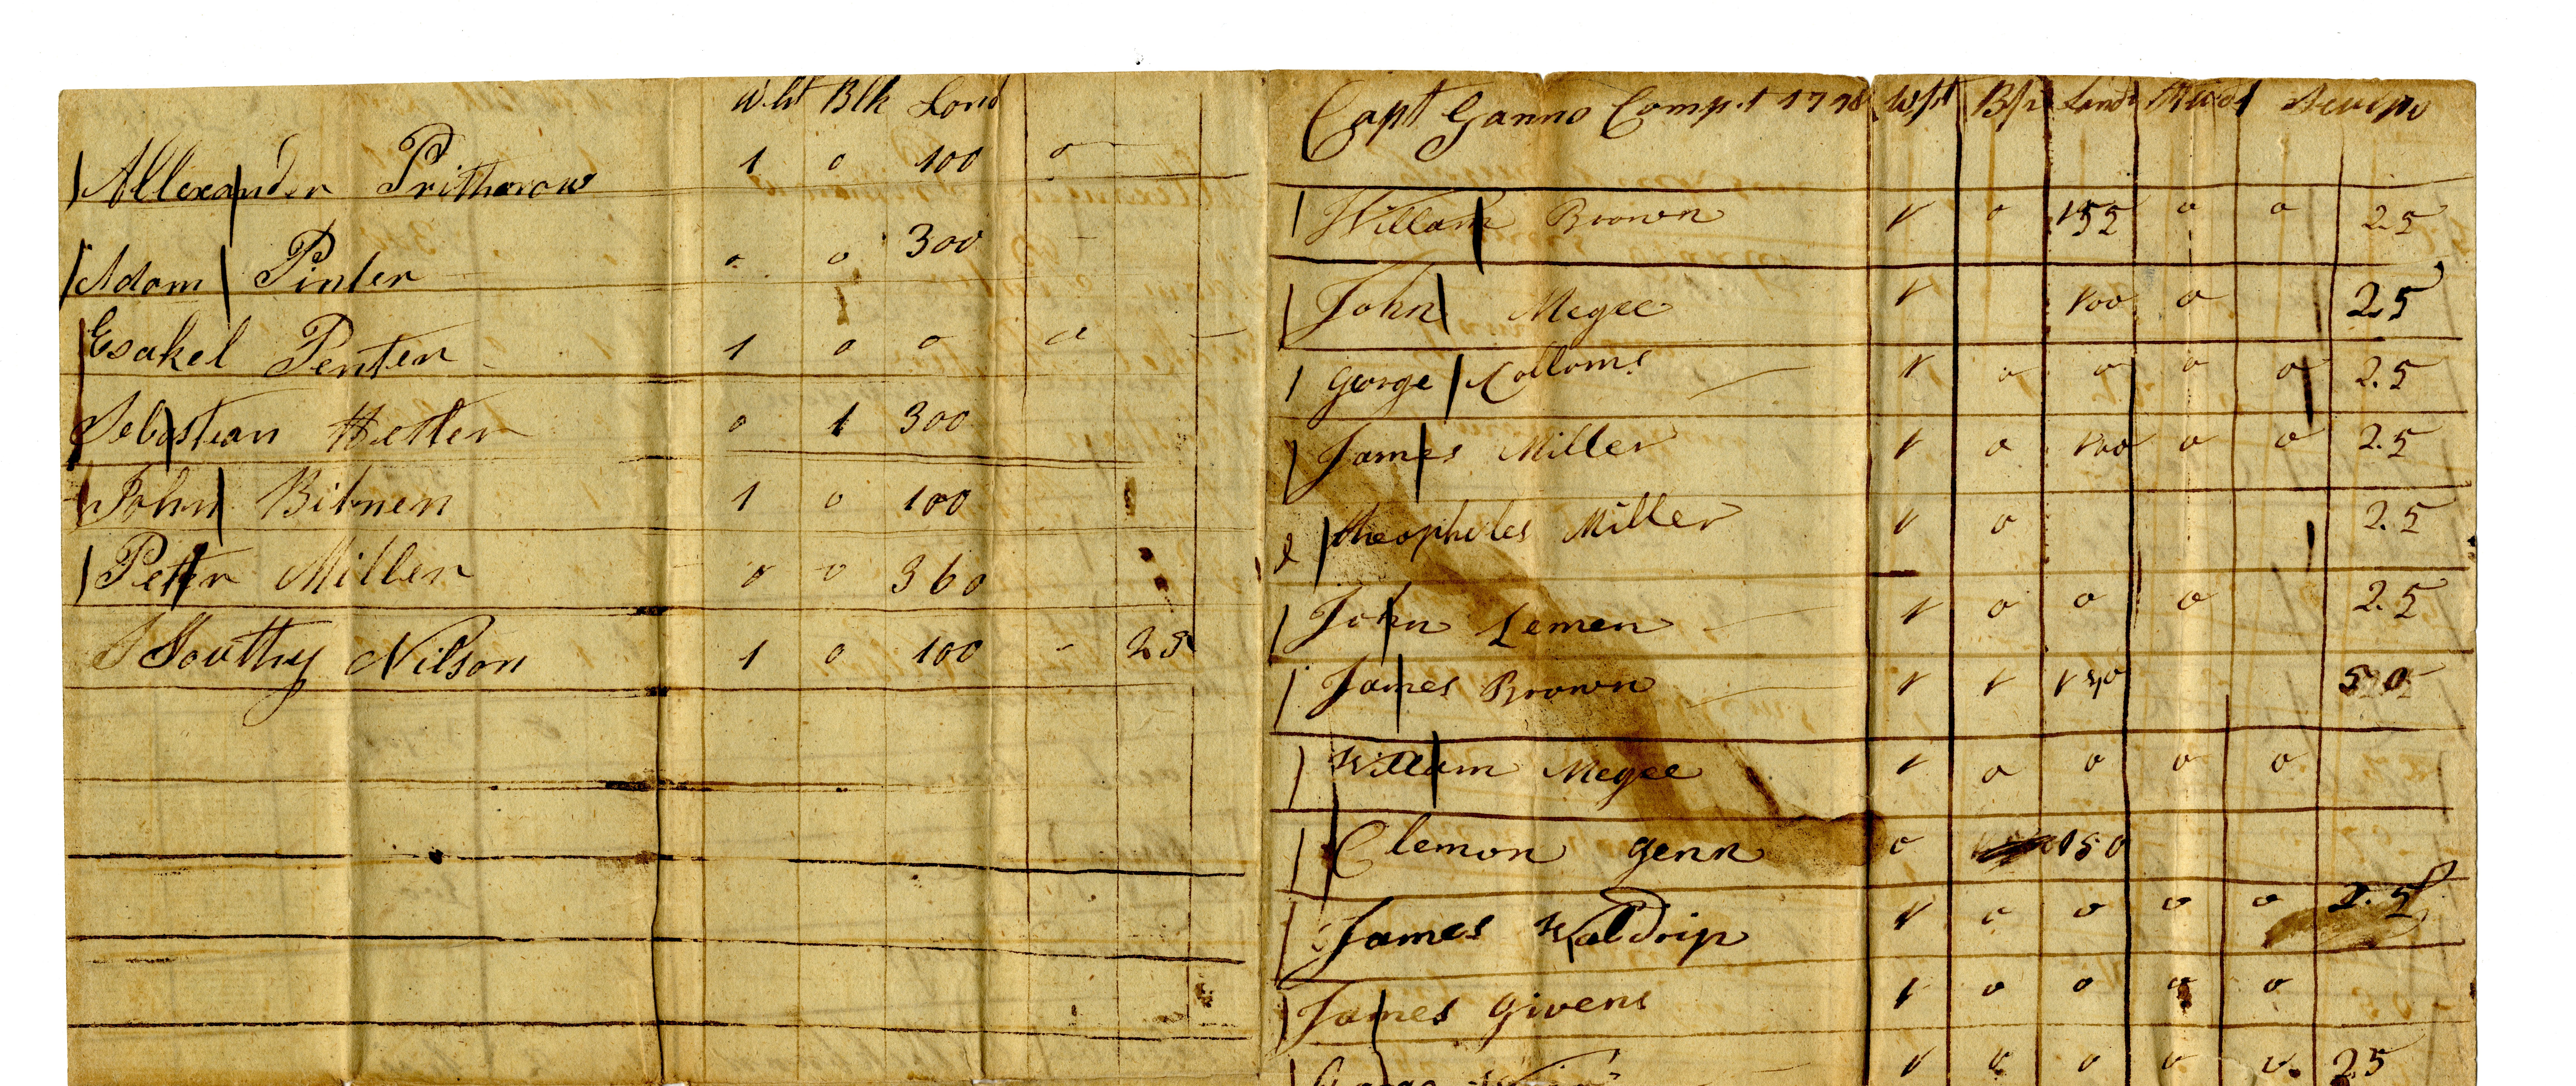 Wht Blk Lond
Allexander Pritherow 1 0 100 0
Adam Pinter 0 0 300
Esakel Penter 1 0 0 0
Sebastian Hetler 0 1 300
John Bibnen 1 0 100
Peter Miller 0 0 360
Southy Nilson 1 0 100 - 25
Capt Ganno Comp.t 1798 Wht Blk Land
Willam Brown 1 0 152 0 0 25
John Megee 1 100 0 25
George Colloms 1 0 0 0 0 2.5
James Miller 1 0 100 0 0 2.5
theopheles Miller 1 0 2.5
John Lemen 1 0 0 0 2.5
James Brown 1 1 150 50
Willam Megee 1 0 0 0 0
Clemon Genn 0 150
James Waldrip 1 0 0 0 0 2.5
James Givens 1 0 0 0 0
1 0 0 0 0 25